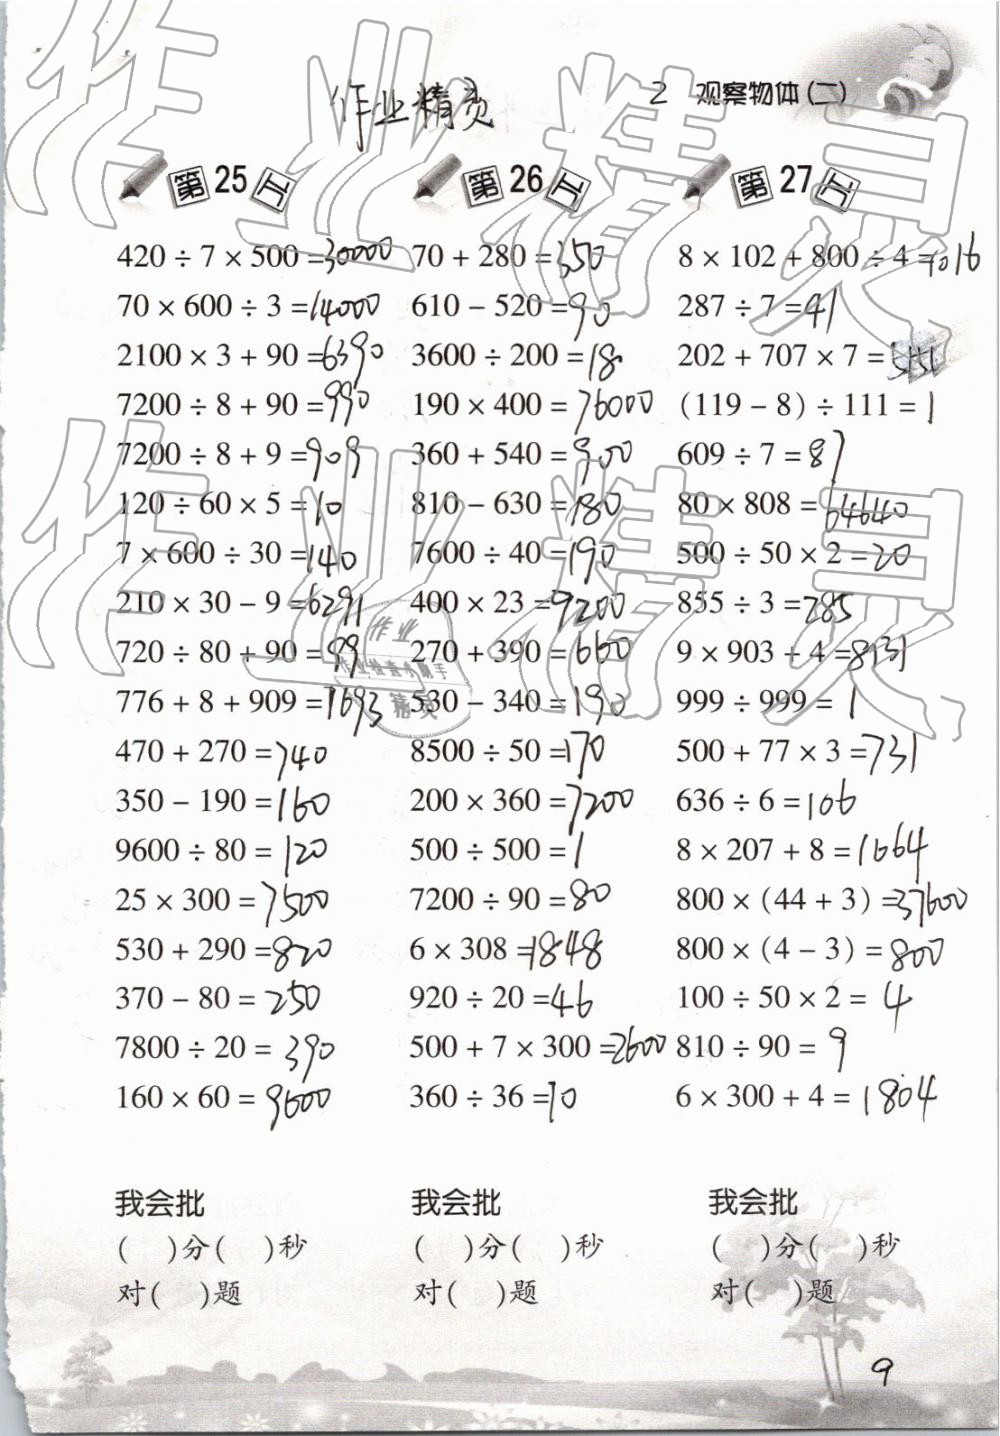 2 观察物体(二)
作业精灵
第25面
420 ÷ 7 × 500 =30000
70 × 600 ÷ 3 =14000
2100 × 3 + 90 =6390
7200 ÷ 8 + 90 =990
7200 ÷ 8 + 9 =909
120 ÷ 60 × 5 =10
7 × 600 ÷ 30 =140
210 × 30 - 9 =6291
720 ÷ 80 + 90 =99
776 + 8 + 909 =1693
470 + 270 =740
350 - 190 =160
9600 ÷ 80 = 120
25 × 300 =7500
530 + 290 =820
370 - 80 = 250
7800 ÷ 20 = 390
160 × 60 = 9600
我会批
( )分( )秒
对( )题
第26面
70 + 280 =350
610 - 520 =90
3600 ÷ 200 =18
190 × 400 = 76000
360 + 540 =900
810 - 630 =180
7600 ÷ 40 =190
400 × 23 =9200
270 + 390 =660
530 - 340 =190
8500 ÷ 50 =170
200 × 360 =7200
500 ÷ 500 =1
7200 ÷ 90 =80
6 × 308 =1848
920 ÷ 20 =46
500 + 7 × 300 =2600
360 ÷ 36 =10
我会批
( )分( )秒
对( )题
第27面
8 × 102 + 800 ÷ 4 =1016
287 ÷ 7 =41
202 + 707 × 7 = 5151
(119 - 8) ÷ 111 = 1
609 ÷ 7 =87
80 × 808 =64640
500 ÷ 50 × 2 =20
855 ÷ 3 =285
9 × 903 + 4 =8131
999 ÷ 999 = 1
500 + 77 × 3 =731
636 ÷ 6 =106
8 × 207 + 8 =1664
800 × (44 + 3) =37600
800 × (4 - 3) = 800
100 ÷ 50 × 2 = 4
810 ÷ 90 = 9
6 × 300 + 4 = 1804
我会批
( )分( )秒
对( )题
作业精灵
作业精灵
作业
作业检查小助手
精灵
9